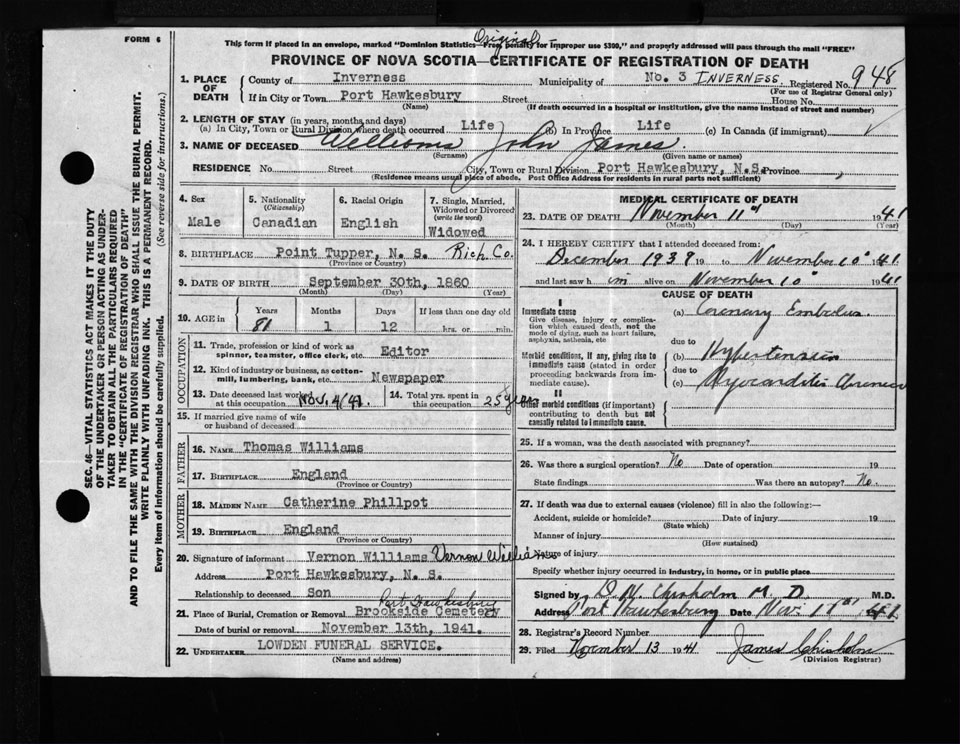 FORM 6
Original
This form if placed in an envelope, marked "Dominion Statistics—Free, penalty for improper use $300," and properly addressed will pass through the mail "FREE"
PROVINCE OF NOVA SCOTIA—CERTIFICATE OF REGISTRATION OF DEATH
1. PLACE OF DEATH
County of Inverness Municipality of No. 3 INVERNESS Registered No. 948
(For use of Registrar General only)
If in City or Town Port Hawkesbury Street House No.
(Name) (If death occurred in a hospital or institution, give the name instead of street and number)
2. LENGTH OF STAY (in years, months and days)
(a) In City, Town or Rural Division where death occurred Life (b) In Province Life (c) In Canada (if immigrant)
3. NAME OF DECEASED Williams John James
(Surname) (Given name or names)
RESIDENCE No. Street City, Town or Rural Division Port Hawkesbury, N.S. Province
(Residence means usual place of abode. Post Office Address for residents in rural parts not sufficient)
4. Sex
Male
5. Nationality
(Citizenship)
Canadian
6. Racial Origin
English
7. Single, Married, Widowed or Divorced
(write the word)
Widowed
8. BIRTHPLACE Point Tupper, N. S. Rich. Co.
(Province or Country)
9. DATE OF BIRTH September 30th, 1860
(Month) (Day) (Year)
10. AGE in
Years Months Days If less than one day old
81 1 12 hrs. or min.
OCCUPATION
11. Trade, profession or kind of work as spinner, teamster, office clerk, etc. Editor
12. Kind of industry or business, as cotton-mill, lumbering, bank, etc. Newspaper
13. Date deceased last worked at this occupation Nov. 4/41.
14. Total yrs. spent in this occupation 25 years
15. If married give name of wife or husband of deceased
FATHER
16. NAME Thomas Williams
17. BIRTHPLACE England
(Province or Country)
MOTHER
18. MAIDEN NAME Catherine Phillpot
19. BIRTHPLACE England
(Province or Country)
20. Signature of informant Vernon Williams Vernon Williams
Address Port Hawkesbury, N. S.
Relationship to deceased Son
Port Hawkesbury
21. Place of Burial, Cremation or Removal Brookside Cemetery
Date of burial or removal November 13th, 1941.
22. UNDERTAKER LOWDEN FUNERAL SERVICE.
(Name and address)
MEDICAL CERTIFICATE OF DEATH
23. DATE OF DEATH November 11th 1941
(Month) (Day) (Year)
24. I HEREBY CERTIFY that I attended deceased from:
December 1939 19 to November 10th 41
and last saw h im alive on November 10th 1941
CAUSE OF DEATH
I
Immediate cause
Give disease, injury or complication which caused death, not the mode of dying, such as heart failure, asphyxia, asthenia, etc
(a) Coronary Embolus
due to
Morbid conditions, if any, giving rise to immediate cause (stated in order proceeding backwards from immediate cause).
(b) Hypertension
due to
(c) Myocarditis Chronic
II
Other morbid conditions (if important) contributing to death but not causally related to immediate cause.
25. If a woman, was the death associated with pregnancy?
26. Was there a surgical operation? No Date of operation 19
State findings Was there an autopsy? No.
27. If death was due to external causes (violence) fill in also the following:—
Accident, suicide or homicide? Date of injury 19
(State which)
Manner of injury
(How sustained)
Nature of injury
Specify whether injury occurred in industry, in home, or in public place
Signed by D. W. Chisholm M. D. M.D.
Address Port Hawkesbury Date Nov. 11th,
28. Registrar's Record Number
29. Filed November 13 1941 James Chisholm
(Division Registrar)
SEC. 46—VITAL STATISTICS ACT MAKES IT THE DUTY
OF THE UNDERTAKER OR PERSON ACTING AS UNDER-
TAKER TO OBTAIN ALL THE PARTICULARS REQUIRED
IN THE "CERTIFICATE OF REGISTRATION OF DEATH"
AND TO FILE THE SAME WITH THE DIVISION REGISTRAR WHO SHALL ISSUE THE BURIAL PERMIT.
WRITE PLAINLY WITH UNFADING INK. THIS IS A PERMANENT RECORD.
Every item of information should be carefully supplied. (See reverse side for instructions.)